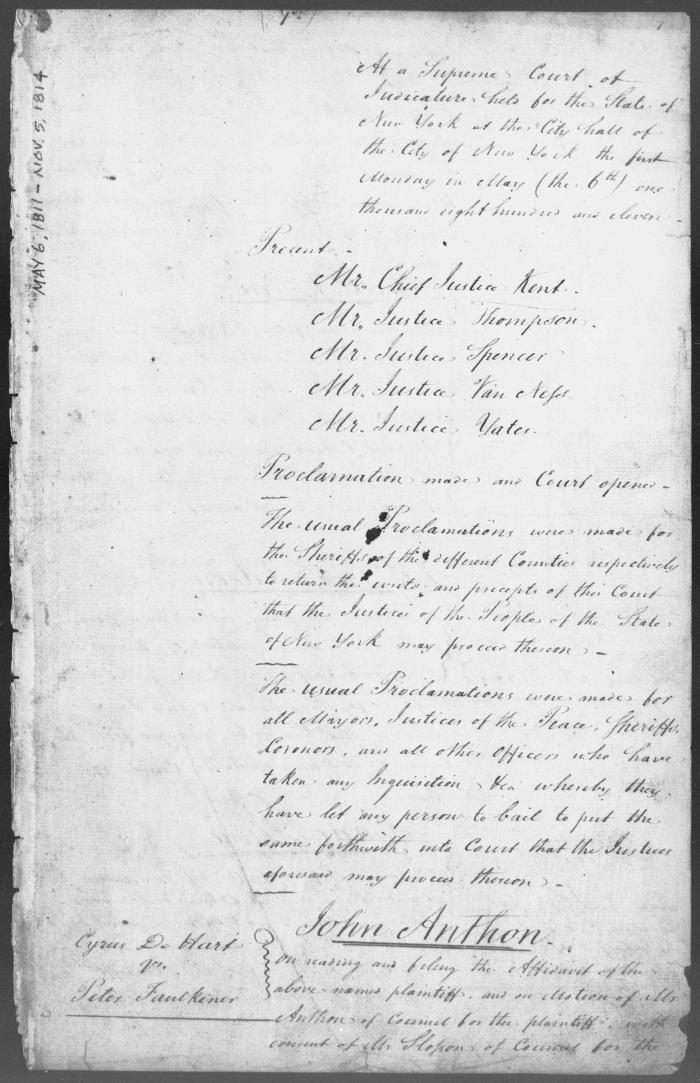 MAY 6, 1811 - NOV. 5, 1814
At a Supreme Court of
Judicature held for the State of
New York at the City hall of
the City of New York the first
Monday in May (the 6th) one
thousand eight hundred and eleven -
Present -
Mr. Chief Justice Kent.
Mr. Justice Thompson.
Mr. Justice Spencer
Mr. Justice Van Ness.
Mr. Justice Yates.
Proclamation made and Court opened -
The usual Proclamations were made for
the Sheriffs of the different Counties respectively
to return the writs and precepts of this Court
that the Justices of the People of the State
of New York may proceed thereon -
The usual Proclamations were made for
all Mayors, Justices of the Peace, Sheriffs,
Coronors, and all other Officers who have
taken any Inquisition &ca whereby they
have let any person to bail to put the
same forthwith into Court that the Justices
aforesaid may proceed thereon -
John Anthon.
Cyrus De Hart
vs.
Peter Faulkener
On reading and filing the Affidavit of the
above named plaintiff, and on Motion of Mr
Anthon of Counsel for the plaintiff, with
consent of Mr Slosson of Counsel for the